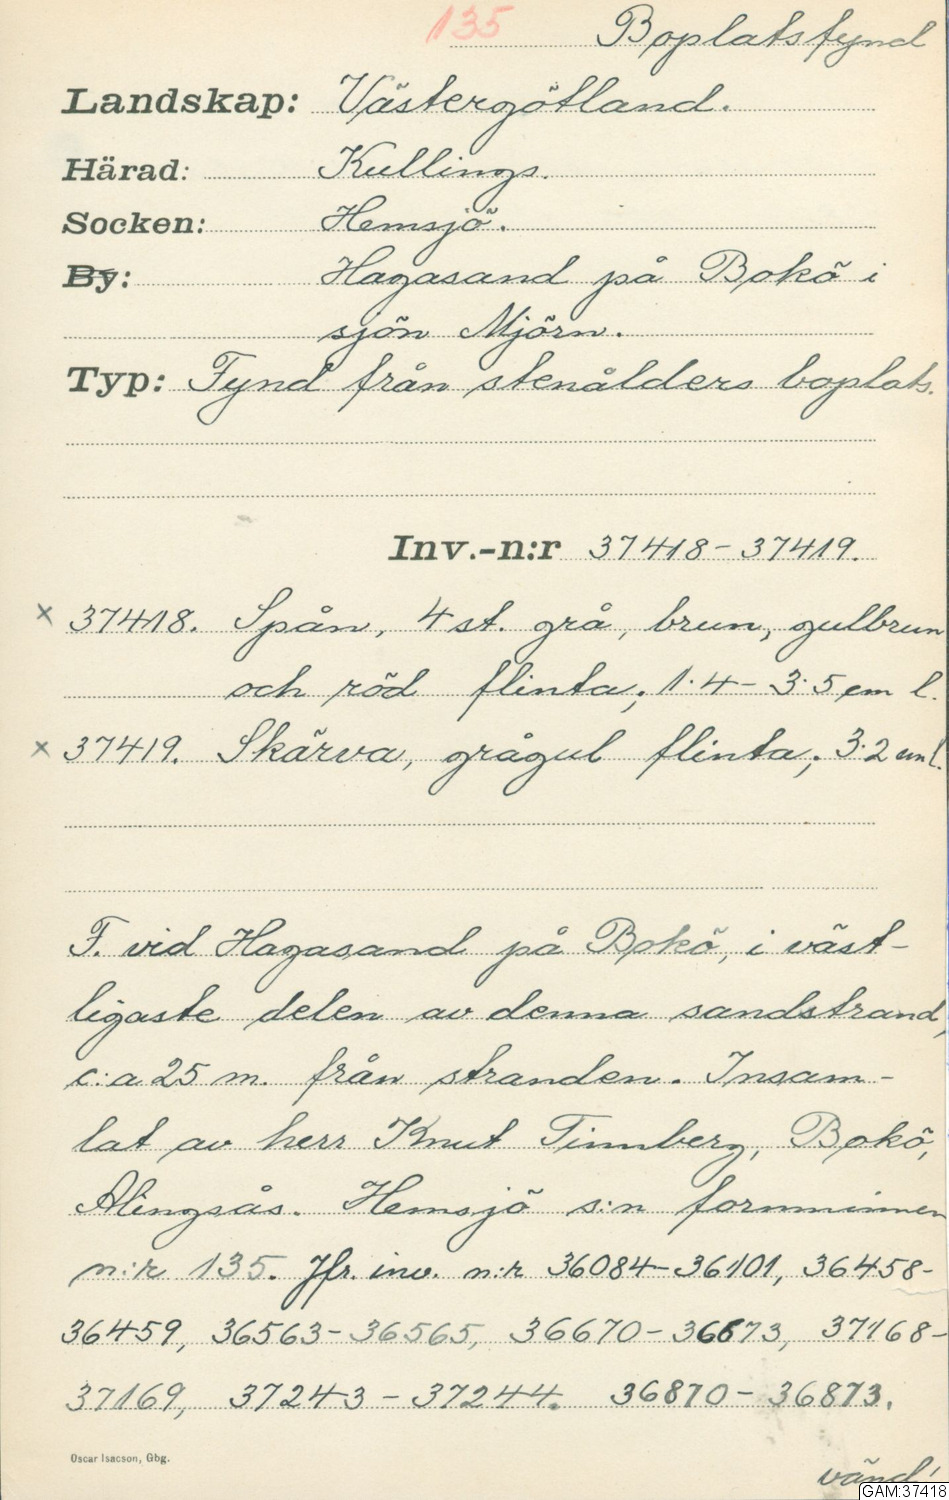 135 Boplatsfynd
Landskap: Västergötland.
Härad: Kullings.
Socken: Hemsjö.
By: Hagasand på Bokö i
sjön Mjörn.
Typ: Fynd från stenålders boplats.
Inv.-n:r 37418-37419.
× 37418. Spån, 4 st. grå, brun, gulbrun
och röd flinta; 1·4-3·5 cm l.
× 37419. Skärva, grågul flinta; 3·2 cm l.
F. vid Hagasand på Bokö, i väst-
ligaste delen av denna sandstrand,
c:a 25 m. från stranden. Insam-
lat av herr Knut Tinnberg, Bokö,
Alingsås. Hemsjö s:n fornminnen
n:r 135. Jfr. inv. n:r 36084-36101, 36458-
36459, 36563-36565, 36670-36673, 37168-
37169, 37243-37244. 36870-36873.
Oscar Isacson, Gbg.
vänd!
GAM:37418